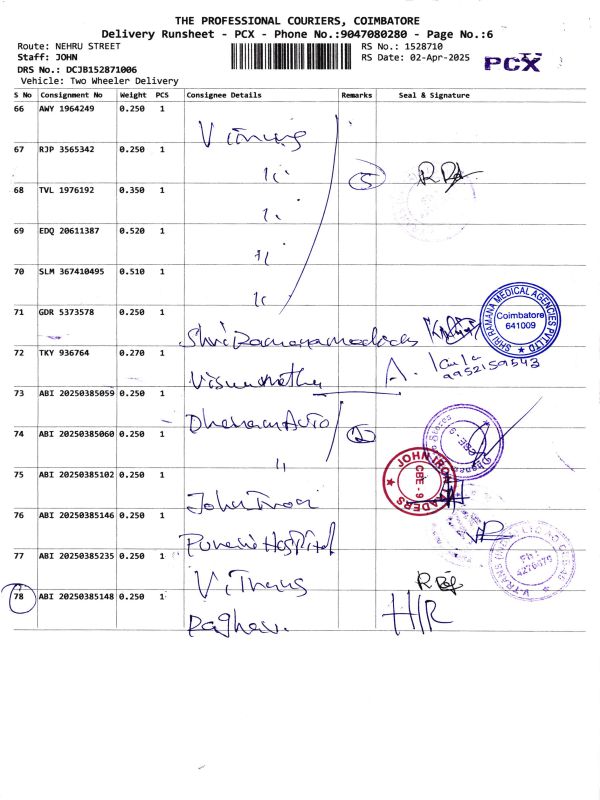 THE PROFESSIONAL COURIERS, COIMBATORE
Delivery Runsheet - PCX - Phone No.:9047080280 - Page No.:6
Route: NEHRU STREET
RS No.: 1528710
Staff: JOHN
RS Date: 02-Apr-2025
PCX
DRS No.: DCJB152871006
Vehicle: Two Wheeler Delivery
S No Consignment No Weight PCS Consignee Details Remarks Seal & Signature
66 AWY 1964249 0.250 1
67 RJP 3565342 0.250 1
5
68 TVL 1976192 0.350 1
69 EDQ 20611387 0.520 1
70 SLM 367410495 0.510 1
71 GDR 5373578 0.250 1 Shri Ramana medicals
SHRI RAMANA MEDICAL AGENCIES PVT LTD
Coimbatore
641009
72 TKY 936764 0.270 1
9952159543
73 ABI 20250385059 0.250 1 Dhanam Auto
74 ABI 20250385060 0.250 1 "
2
75 ABI 20250385102 0.250 1 John Iron
JOHN IRON TRADERS
CBE - 9
76 ABI 20250385146 0.250 1 Hospital
77 ABI 20250385235 0.250 1 V Trans
78 ABI 20250385148 0.250 1 Raghav.
H/R